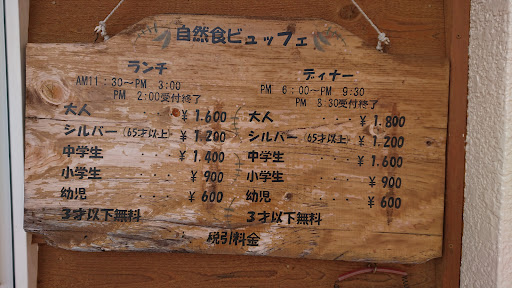 自然食ビュッフェ
ランチ
AM11:30~PM 3:00
PM 2:00受付終了
大人 ・・・ ¥1.600
シルバー(65才以上) ¥1.200
中学生 ・・・ ¥1.400
小学生 ・・・ ¥900
幼児 ・・・ ¥600
3才以下無料
ディナー
PM 6:00~PM 9:30
PM 8:30受付終了
大人 ・・・ ¥1.800
シルバー(65才以上) ¥1.200
中学生 ・・・ ¥1.600
小学生 ・・・ ¥900
幼児 ・・・ ¥600
3才以下無料
税引料金